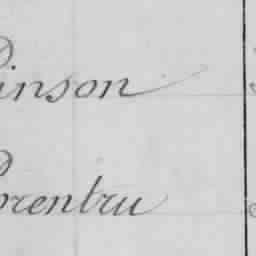 inson
orentru